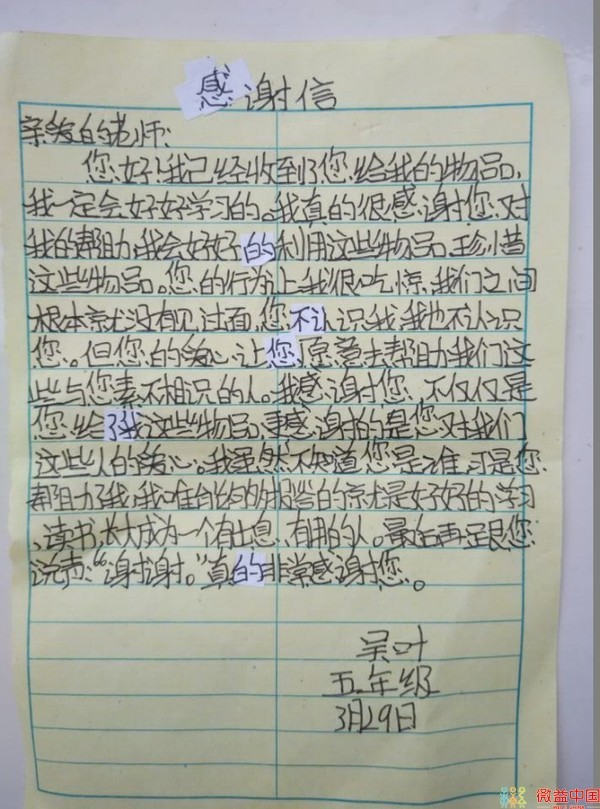 感谢信
亲爱的老师:
您好!我已经收到了您给我的物品,
我一定会好好学习的。我真的很感谢您对
我的帮助,我会好好的利用这些物品,珍惜
这些物品。您的行为让我很吃惊,我们之间
根本就没有见过面,您不认识我,我也不认识
您。但您的爱心让您愿意去帮助我们这
些与您素不相识的人。我感谢您,不仅仅是
您给了我这些物品,更感谢的是您对我们
这些人的关心。我虽然不知道您是谁,可是您
帮助了我,我唯能够报答的就是好好的学习
、读书,长大成为一个有出息、有用的人。最后再跟您
说声:“谢谢。”真的非常感谢您。
吴叶
五年级
3月29日
微益中国